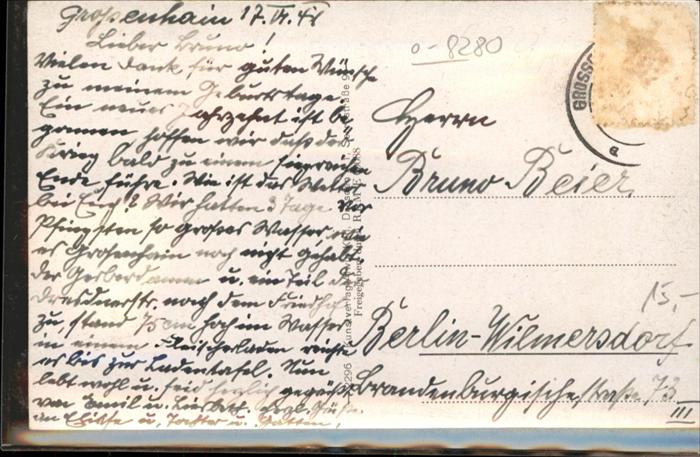 Großenhain 17.VI.41
Lieber Bruno!
Vielen Dank für guten Wünsche
zu meinem Geburtstage.
Ein neues Jahrzehnt ist be
gonnen hoffen wir daß der
Krieg bald zu einem siegreichen
Ende führe. Wie ist das Wetter
bei Euch? Wir hatten 3 Tage vor
Pfingsten so großes Wasser, wie
es Großenhain noch nicht gehabt.
Der Gerberdamm u. ein Teil der
Dresdnerstr. nach dem Friedhof
zu, stand 75 cm hoch im Wasser
in einem laden reichte
es bis zur Ladentafel. Nun
lebt wohl u. seid herzlich gegrüßt
von Emil u. Liesbeth. Grüße
an u. Tochter u. Gatten.
0-8280
GROSS
Herrn
Bruno Beier
Berlin-Wilmersdorf
Brandenburgischestraße 73
III
15,-
2296 Kunstverlag
Freigegeben durch R.L.M.